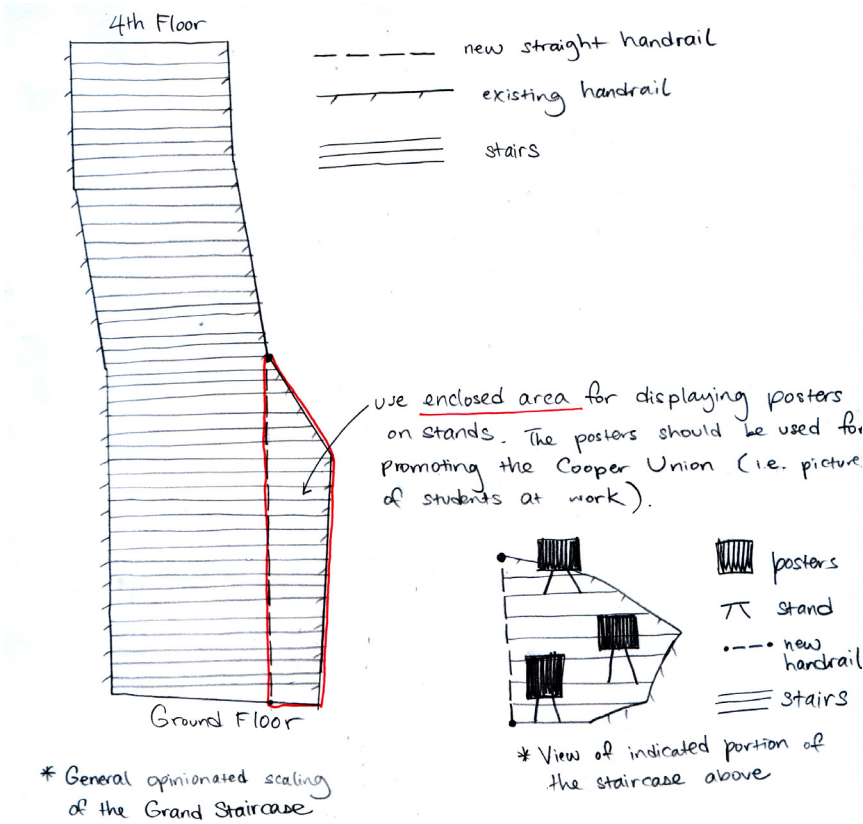 4th Floor
new straight handrail
existing handrail
stairs
use enclosed area for displaying posters
on stands. The posters should be used for
promoting the Cooper Union (i.e. picture
of students at work).
posters
stand
new
handrail
stairs
Ground Floor
* View of indicated portion of
the staircase above
* General opinionated scaling
of the Grand Staircase